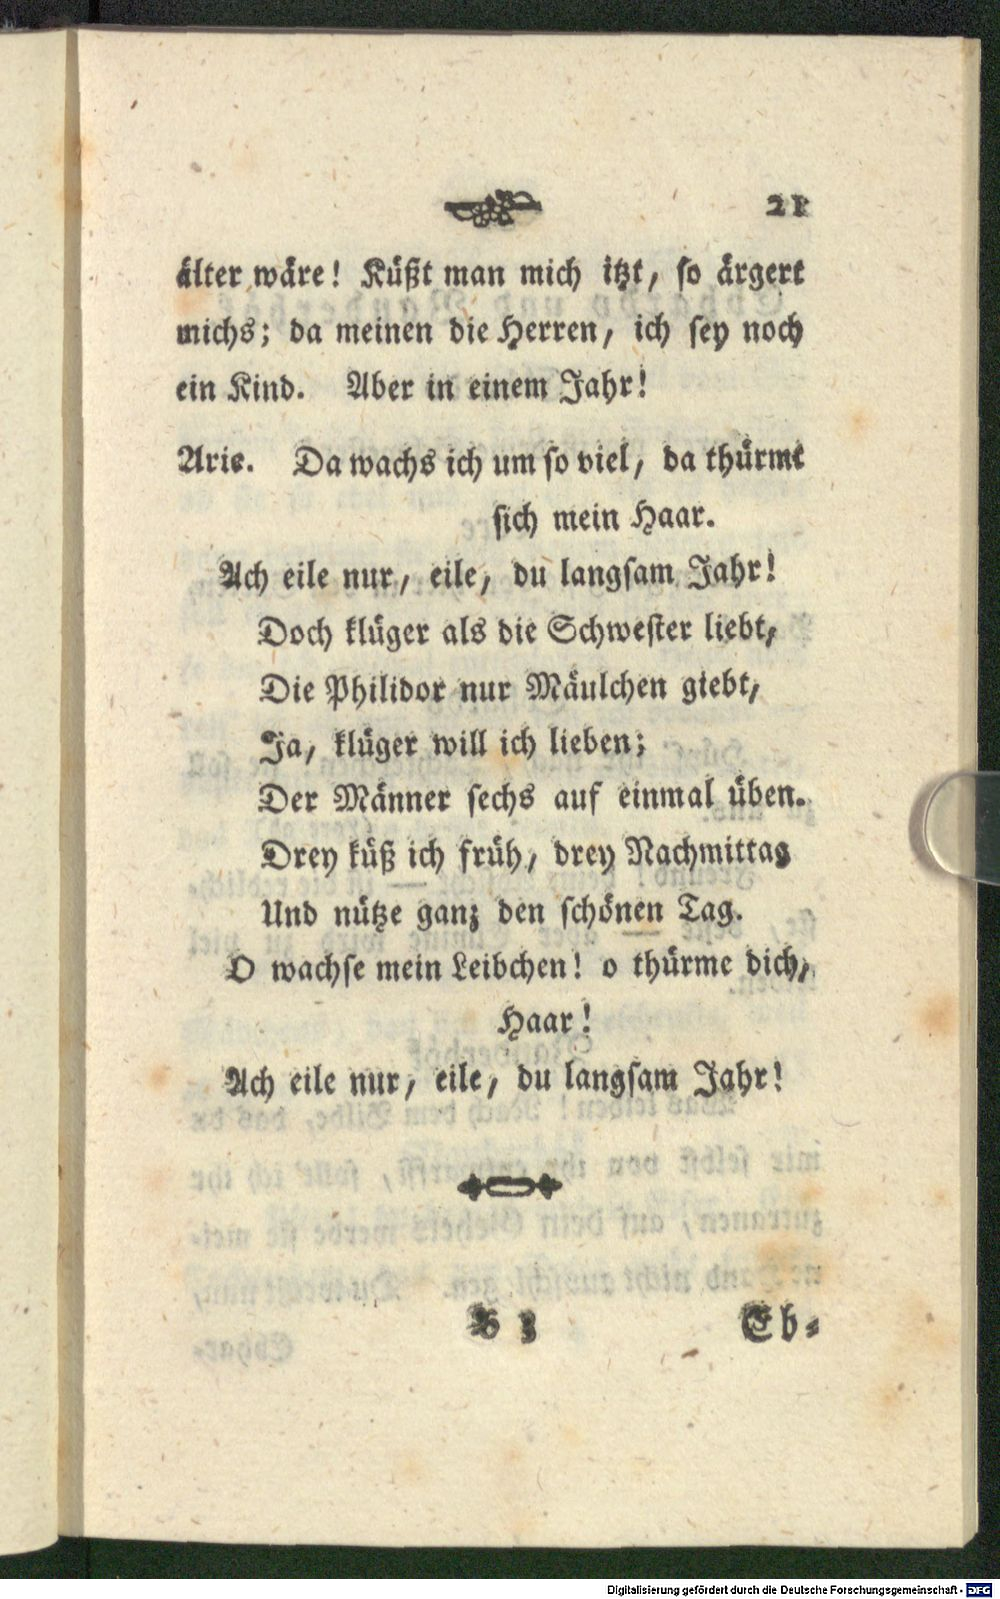 21
älter wäre! Küßt man mich itzt, so ärgert
michs; da meinen die Herren, ich sey noch
ein Kind. Aber in einem Jahr!
Arie. Da wachs ich um so viel, da thürmt
sich mein Haar.
Ach eile nur, eile, du langsam Jahr!
Doch klüger als die Schwester liebt,
Die Philidor nur Mäulchen giebt,
Ja, klüger will ich lieben;
Der Männer sechs auf einmal üben.
Drey küß ich früh, drey Nachmittag
Und nütze ganz den schönen Tag.
O wachse mein Leibchen! o thürme dich,
Haar!
Ach eile nur, eile, du langsam Jahr!
B 3 Eb-
Digitalisierung gefördert durch die Deutsche Forschungsgemeinschaft - DFG